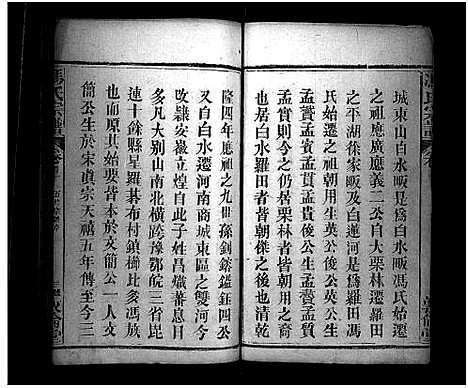 城東山白水畈是爲白水畈馮氏始遷
之祖應廣應義二公自大栗林遷羅田
之平湖徐家畈及白蓮河是爲羅田馮
氏始遷之祖朝用生英公俊公英公生
孟賓孟貫孟賢俊公生孟贇孟質
孟實則今之仍居栗林者皆朝用之裔
也居白水羅田者皆朝傑之後也
隆四年應祖之九世孫釗鎔鎰鈺四公
又自白水遷河南商城東區之雙河今
改隸安徽立煌自此子姓昌熾蕃息日
多凡大别山南北橫跨豫鄂皖三省毘
連十餘縣星羅碁布村鎮櫛比多馮族
也而原其始要皆本於文簡公一人文
簡公生於宋眞宗天禧五年傳至今三
馮氏宗譜